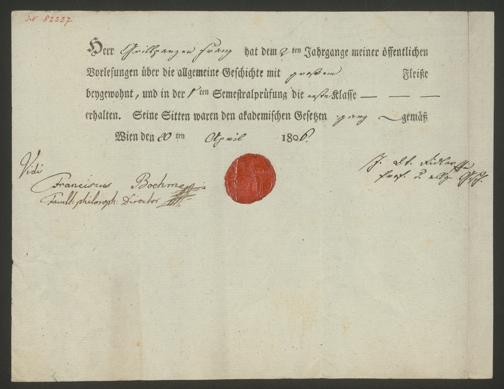 Herr Grillparzer Franz hat dem 2ten Jahrgange meiner öffentlichen
Vorlesungen über die allgemeine Geschichte mit großem Fleiße
beygewohnt, und in der 1ten Semestralprüfung die erste Klasse — — —
erhalten. Seine Sitten waren den akademischen Gesetzen ganz gemäß
Wien den ten April 180
Vidi
Franciscus
philosoph. Director
Prof. d. allg. Gesch.